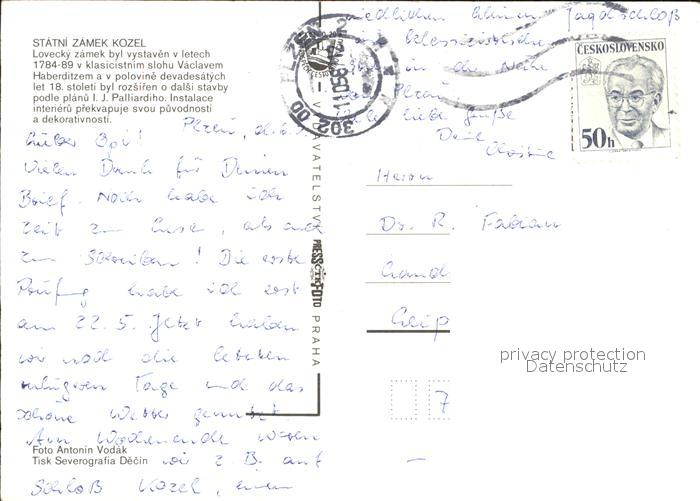 STÁTNÍ ZÁMEK KOZEL
Lovecký zámek byl vystavěn v letech
1784-89 v klasicistním slohu Václavem
Haberditzem a v polovině devadesátých
let 18. století byl rozšířen o další stavby
podle plánů I. J. Palliardiho. Instalace
interiérů překvapuje svou původností
a dekorativností.
Plzeň, d.
Lieber Opi!
Vielen Dank für Deinen
Brief. Noch habe ich
Zeit zum Lesen, als auch
zum Schreiben! Die erste
Prüfung habe ich erst
am 22. 5. Jetzt haben
wir noch die letzten
ruhigen Tage und das
schöne Wetter genutzt
Am Wochenende waren
wir z. B. auf
Schloß Kozel, einem
niedlichen kleinen Jagdschloß
in der Nähe
Plzeň
liebe Grüße
Dein
Foto Antonín Vodák
Tisk Severografia Děčín
VYDAVATELSTVÍ PRESSFOTO PRAHA
302 00
ČESKOSLOVENSKO
50h
Herrn
Dr. R. Fabian
7
privacy protection
Datenschutz